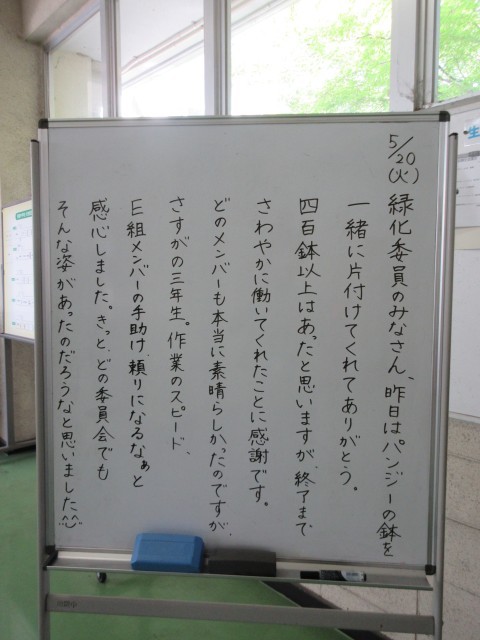 5/20(火) 緑化委員のみなさん、昨日はパンジーの鉢を
一緒に片付けてくれてありがとう。
四百鉢以上はあったと思いますが、終了まで
さわやかに働いてくれたことに感謝です。
どのメンバーも本当に素晴らしかったのですが、
さすがの三年生。作業のスピード、
E組メンバーの手助け、頼りになるなぁと
感心しました。きっと、どの委員会でも
そんな姿があったのだろうなと思いました^^
生